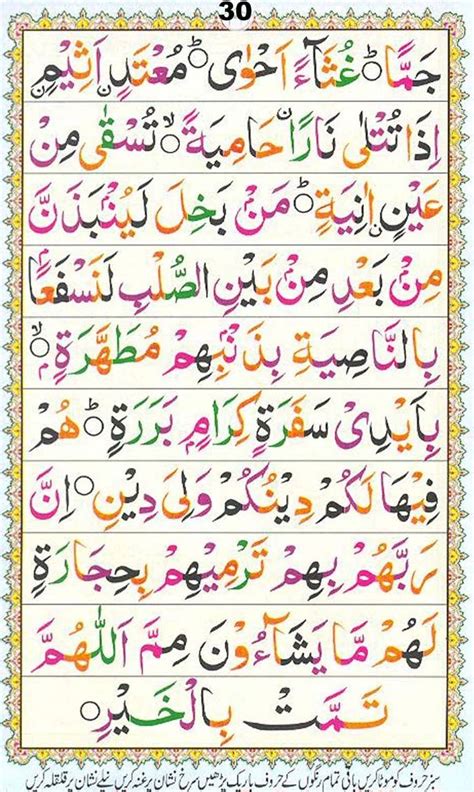 30
جَمًّا ۝ؕ غُثَآءً اَحْوٰی ۝ؕ مُعْتَدٍ اَثِیْمٍ
اِذَا تُتْلٰی نَارًا حَامِیَةً ۝ۙ تُسْقٰی مِنْ
عَیْنٍ اٰنِیَةٍ ۝ؕ مَنْۢ بَخِلَ لَیُنْۢبَذَنَّ
مِنْۢ بَعْدِ مِنْۢ بَیْنِ الصُّلْبِ لَنَسْفَعًاۢ
بِالنَّاصِیَةِ بِذَنْۢبِهِمْ مُطَهَّرَةٍۭ ۝ۙ
بِاَیْدِیْ سَفَرَةٍ كِرَامٍۭ بَرَرَةٍ ۝ؕ هُمْ
فِیْهَا لَكُمْ دِیْنُكُمْ وَلِیَ دِیْنِ ۝ اِنَّ
رَبَّهُمْ بِهِمْ تَرْمِیْهِمْ بِحِجَارَةٍ
لَهُمْ مَا یَشَآءُوْنَ مِمَّ اَللّٰهُمَّ
تَمَّتْ بِالْخَیْرِ ۝
سبز حروف کو موٹا کریں باقی تمام رنگوں کے حروف باریک پڑھیں سرخ نشان پر غنہ کریں نیلے نشان پر قلقلہ کریں